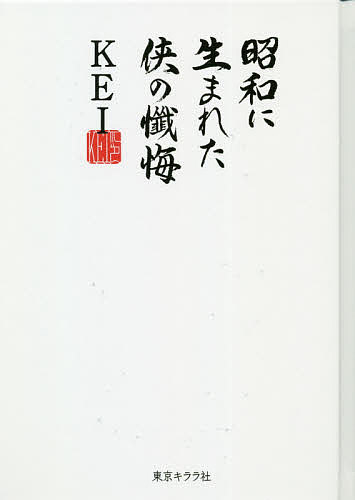 昭和に
生まれた
侠の懺悔
KEI
KEI
東京キララ社